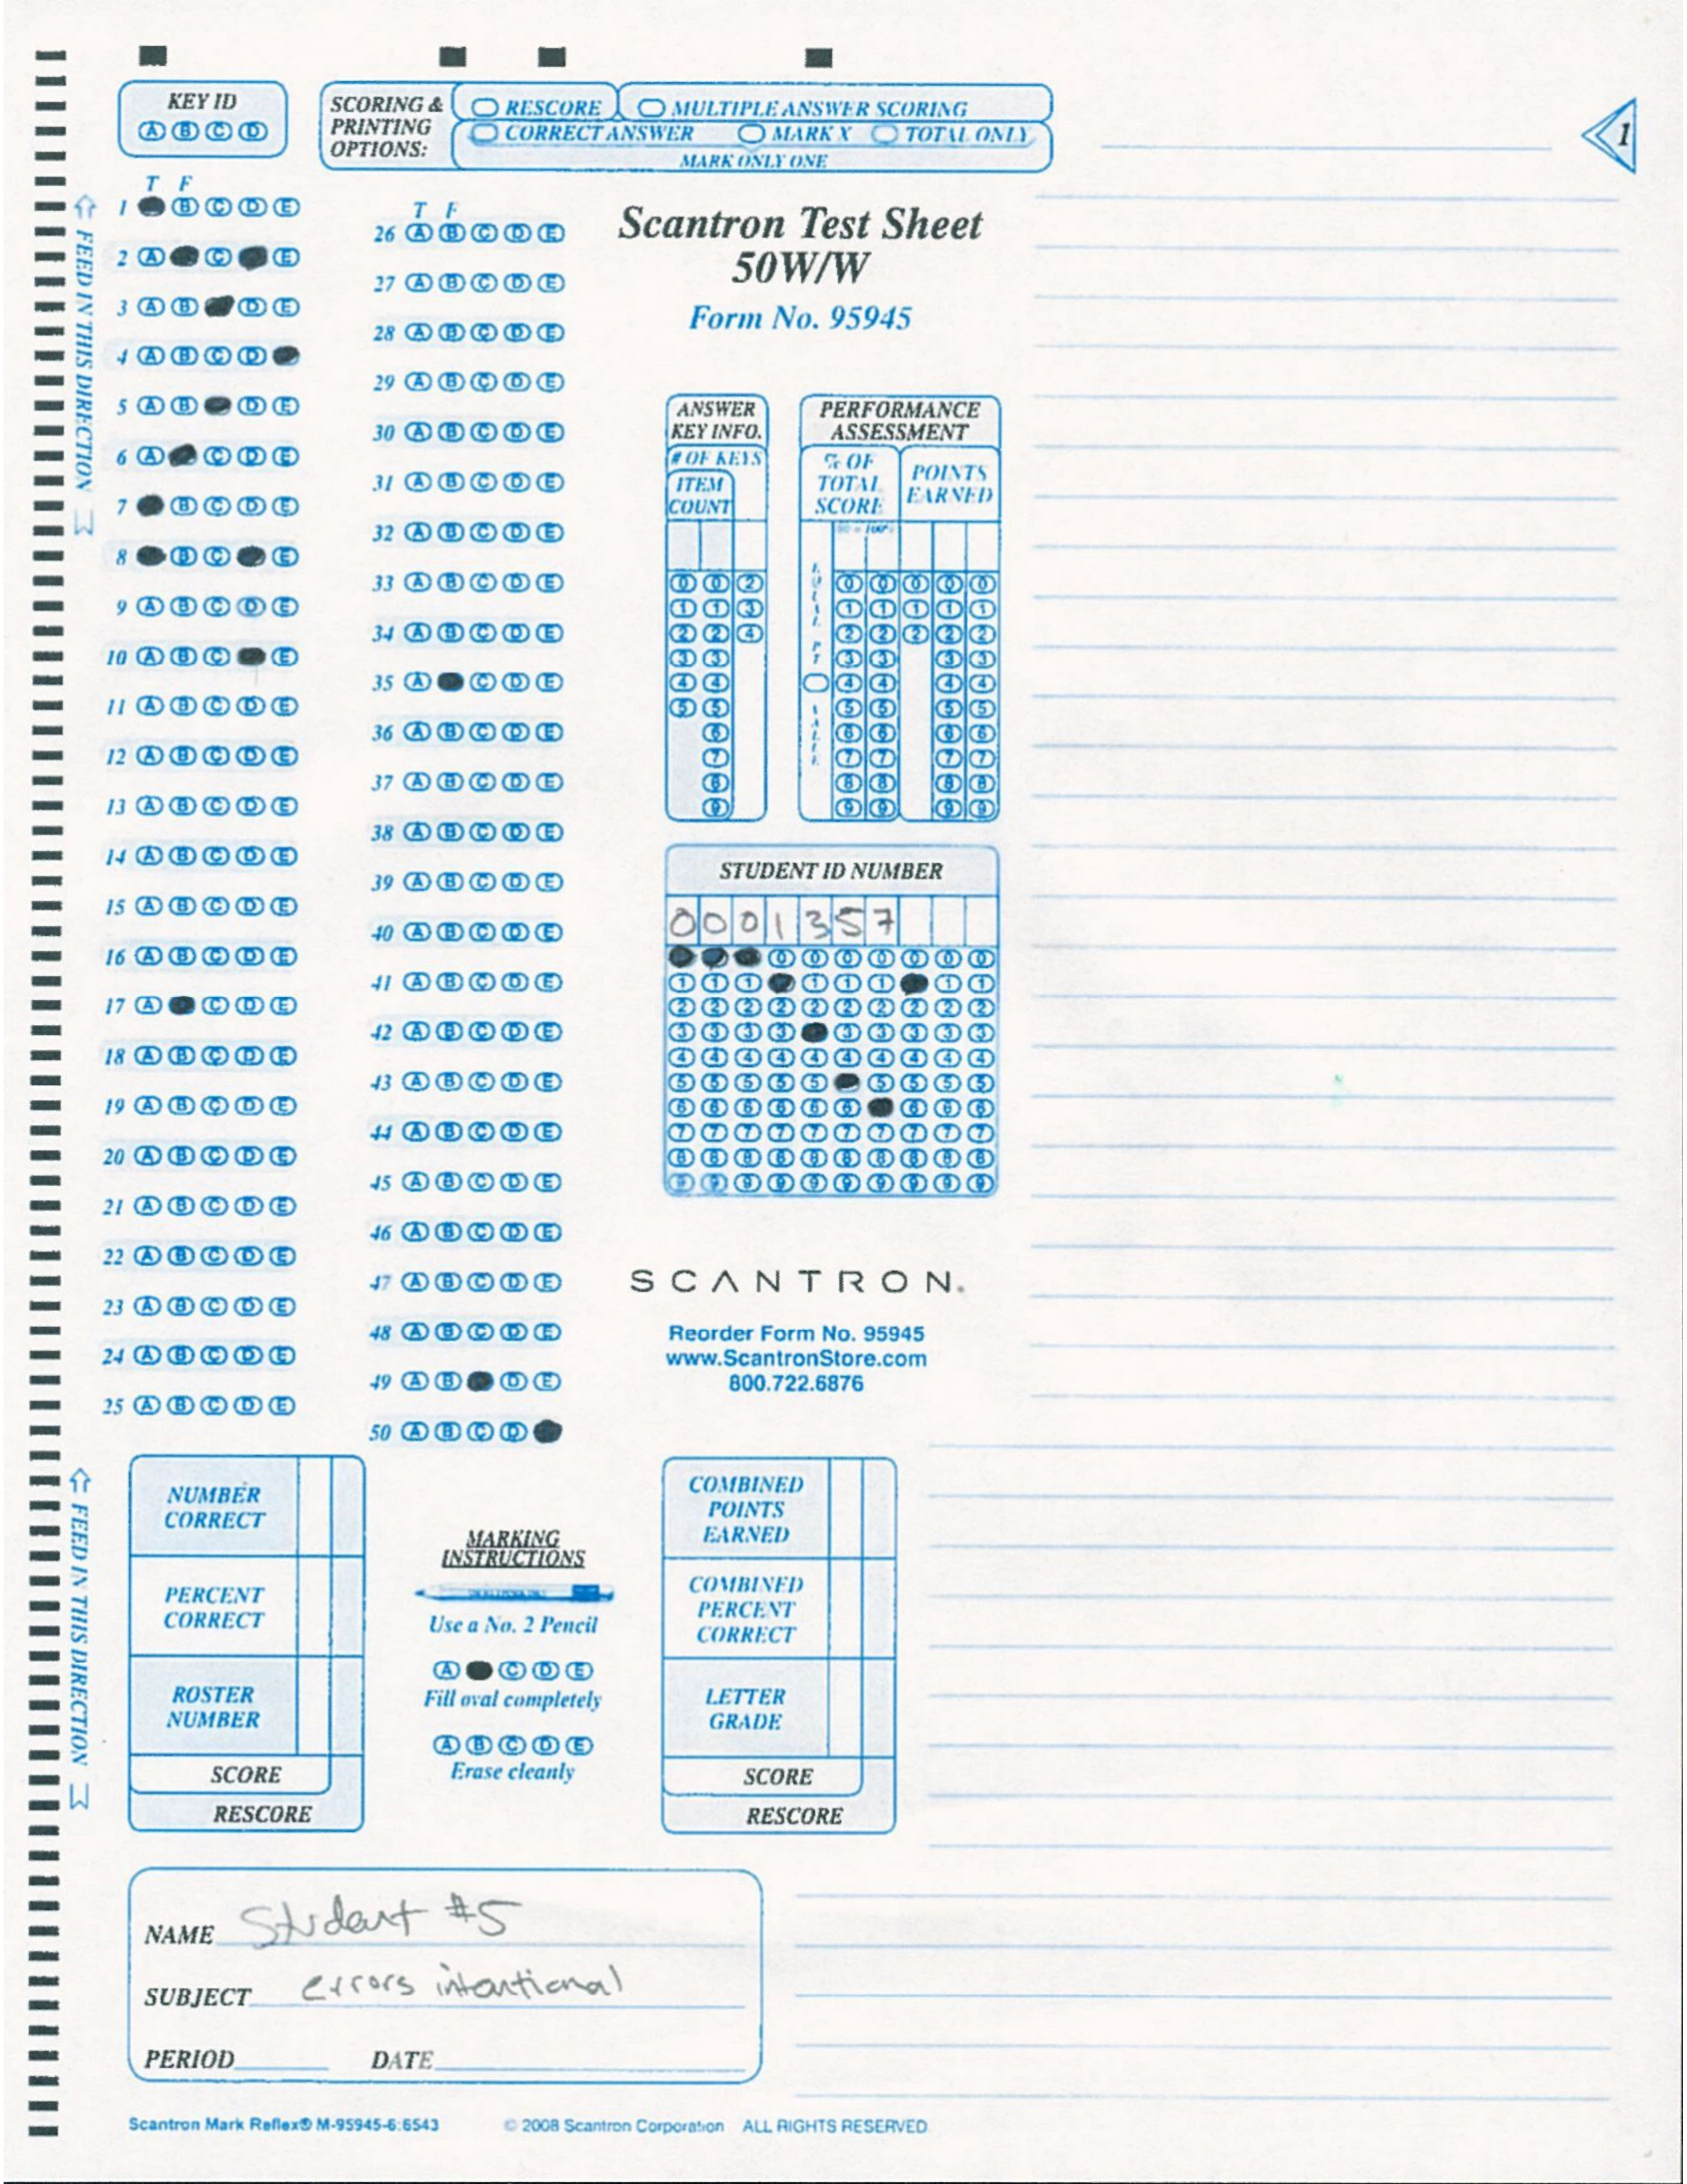 KEY ID
A B C D
SCORING &
PRINTING
OPTIONS:
RESCORE MULTIPLE ANSWER SCORING
CORRECT ANSWER MARK X TOTAL ONLY
MARK ONLY ONE
1
FEED IN THIS DIRECTION
T F
1 B C D E
2 A C E
3 A B D E
4 A B C D
5 A B D E
6 A C D E
7 B C D E
8 B C E
9 A B C D E
10 A B C E
11 A B C D E
12 A B C D E
13 A B C D E
14 A B C D E
15 A B C D E
16 A B C D E
17 A C D E
18 A B C D E
19 A B C D E
20 A B C D E
21 A B C D E
22 A B C D E
23 A B C D E
24 A B C D E
25 A B C D E
T F
26 A B C D E
27 A B C D E
28 A B C D E
29 A B C D E
30 A B C D E
31 A B C D E
32 A B C D E
33 A B C D E
34 A B C D E
35 A C D E
36 A B C D E
37 A B C D E
38 A B C D E
39 A B C D E
40 A B C D E
41 A B C D E
42 A B C D E
43 A B C D E
44 A B C D E
45 A B C D E
46 A B C D E
47 A B C D E
48 A B C D E
49 A B D E
50 A B C D
Scantron Test Sheet
50W/W
Form No. 95945
ANSWER
KEY INFO.
# OF KEYS
ITEM
COUNT
0 0 2
1 1 3
2 2 4
3 3
4 4
5 5
6
7
8
9
PERFORMANCE
ASSESSMENT
% OF
TOTAL
SCORE
POINTS
EARNED
00 = 100%
EQUAL PT VALUE
0 0 0 0 0
1 1 1 1 1
2 2 2 2 2
3 3 3 3
4 4 4 4
5 5 5 5
6 6 6 6
7 7 7 7
8 8 8 8
9 9 9 9
STUDENT ID NUMBER
0 0 0 1 3 5 7
0 0 0 0 0 0 0
1 1 1 1 1 1 1 1
2 2 2 2 2 2 2 2 2 2
3 3 3 3 3 3 3 3 3
4 4 4 4 4 4 4 4 4 4
5 5 5 5 5 5 5 5 5
6 6 6 6 6 6 6 6 6
7 7 7 7 7 7 7 7 7 7
8 8 8 8 8 8 8 8 8 8
9 9 9 9 9 9 9 9 9 9
SCANTRON.
Reorder Form No. 95945
www.ScantronStore.com
800.722.6876
FEED IN THIS DIRECTION
NUMBER
CORRECT
PERCENT
CORRECT
ROSTER
NUMBER
SCORE
RESCORE
MARKING
INSTRUCTIONS
Use a No. 2 Pencil
A C D E
Fill oval completely
A B C D E
Erase cleanly
COMBINED
POINTS
EARNED
COMBINED
PERCENT
CORRECT
LETTER
GRADE
SCORE
RESCORE
NAME Student #5
SUBJECT errors intentional
PERIOD DATE
Scantron Mark Reflex® M-95945-6:6543 © 2008 Scantron Corporation ALL RIGHTS RESERVED